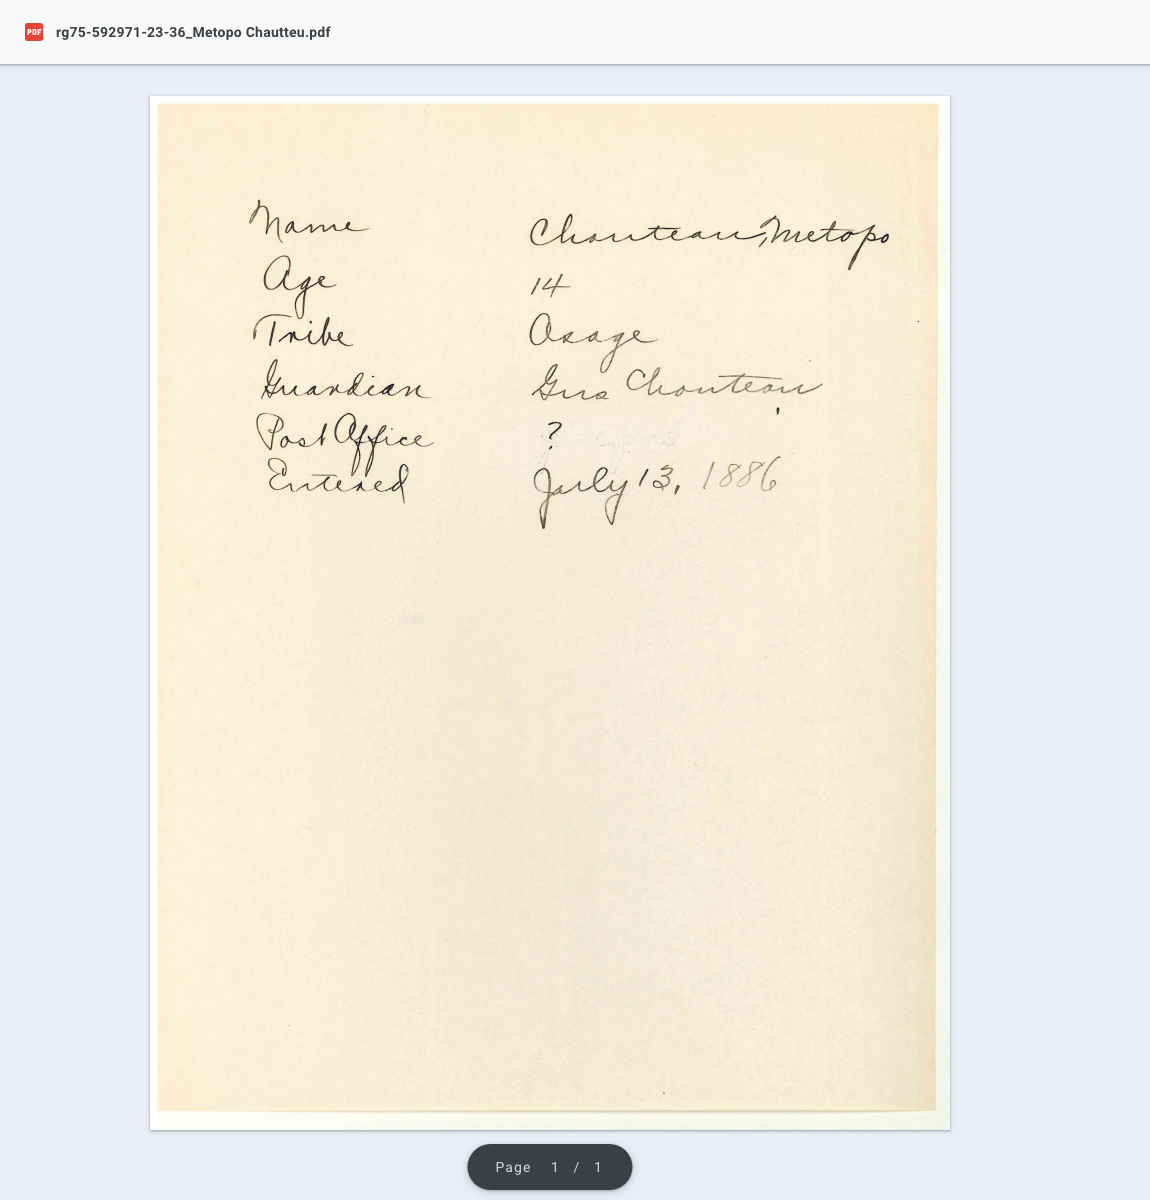 PDF rg75-592971-23-36_Metopo Chautteu.pdf
Name Chouteau, Metopo
Age 14
Tribe Osage
Guardian Gus Chouteau
Post Office ?
Entered July 13, 1886
Page 1 / 1